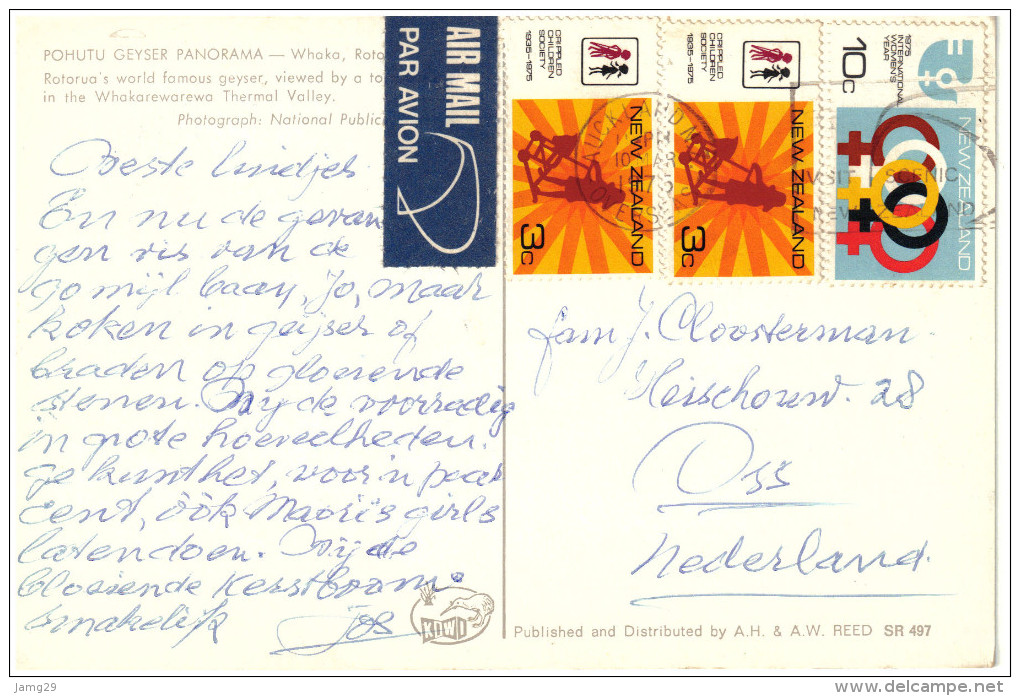 POHUTU GEYSER PANORAMA — Whaka, Roto
Rotorua's world famous geyser, viewed by a to
in the Whakarewarewa Thermal Valley.
Photograph: National Public
AIR MAIL
PAR AVION
CRIPPLED
CHILDREN
SOCIETY
1935-1975
NEW ZEALAND
3c
CRIPPLED
CHILDREN
SOCIETY
1935-1975
NEW ZEALAND
3c
1975
INTERNATIONAL
WOMEN'S
YEAR
10c
NEW ZEALAND
10 MAR
1975
VISIT SCENIC
NEW ZEALAND
Beste luidjes
En nu de gevan
gen vis van de
90 mijl baay, Jo, maar
koken in geijser of
braden op gloeiende
stenen. de voorradig
in grote hoeveelheden.
Je kunt het, voor 'n paar
cent, òòk Maori's girls
laten doen. de
bloeiende Kerstboom.
smakelijk Jos
fam J. Cloosterman
28
Oss
Nederland.
KIWI
Published and Distributed by A.H. & A.W. REED SR 497
jamg29
www.delcampe.net